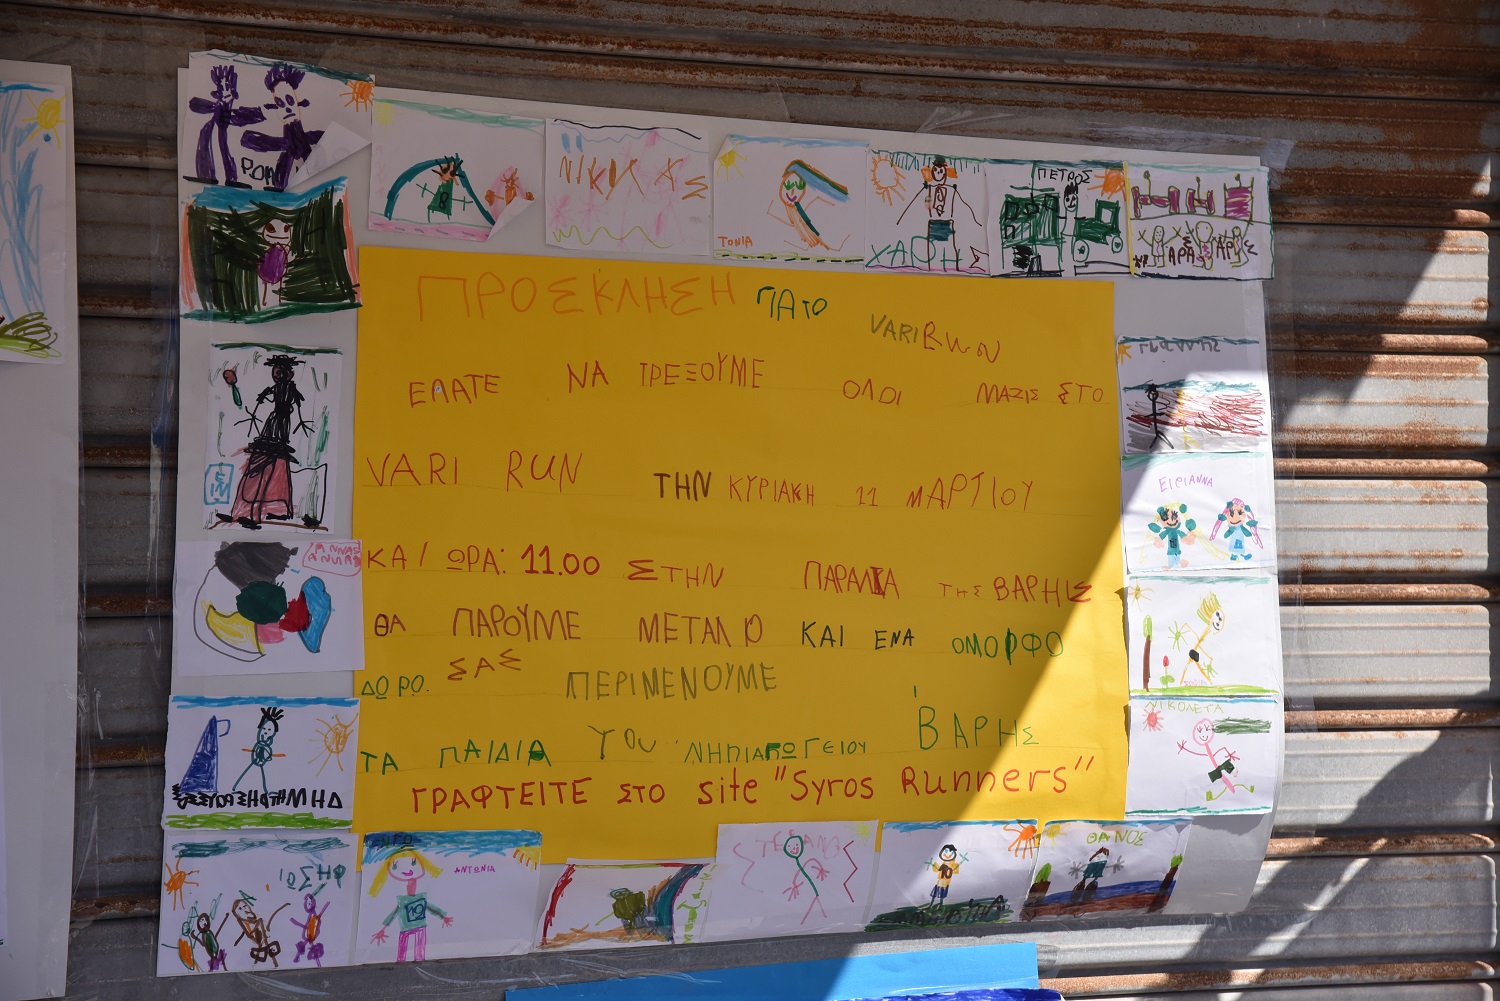 ΠΡΟΣΚΛΗΣΗ ΓΙΑ ΤΟ VARI RUN
ΕΛΑΤΕ ΝΑ ΤΡΕΞΟΥΜΕ ΟΛΟΙ ΜΑΖΙΣ ΣΤΟ
VARI RUN ΤΗΝ ΚΥΡΙΑΚΗ 11 ΜΑΡΤΙΟΥ
ΚΑΙ ΩΡΑ: 11.00 ΣΤΗΝ ΠΑΡΑΛΙΑ ΤΗΣ ΒΑΡΗΣ
ΘΑ ΠΑΡΟΥΜΕ ΜΕΤΑΛΙΟ ΚΑΙ ΕΝΑ ΟΜΟΡΦΟ
ΔΩΡΟ. ΣΑΣ ΠΕΡΙΜΕΝΟΥΜΕ
ΤΑ ΠΑΙΔΙΑ ΤΟΥ ΝΗΠΙΑΓΩΓΕΙΟΥ ΒΑΡΗΣ
ΓΡΑΦΤΕΙΤΕ ΣΤΟ site "Syros Runners"
ΝΙΚΚΑΣ
ΤΟΝΙΑ
ΧΑΡΗΣ
ΠΕΤΡΟΣ
ΓΙΑΝΝΗΣ
ΕΙΡΙΑΝΝΑ
ΝΙΚΟΛΕΤΑ
ΑΝΤΩΝΙΑ
ΘΑΝΟΣ